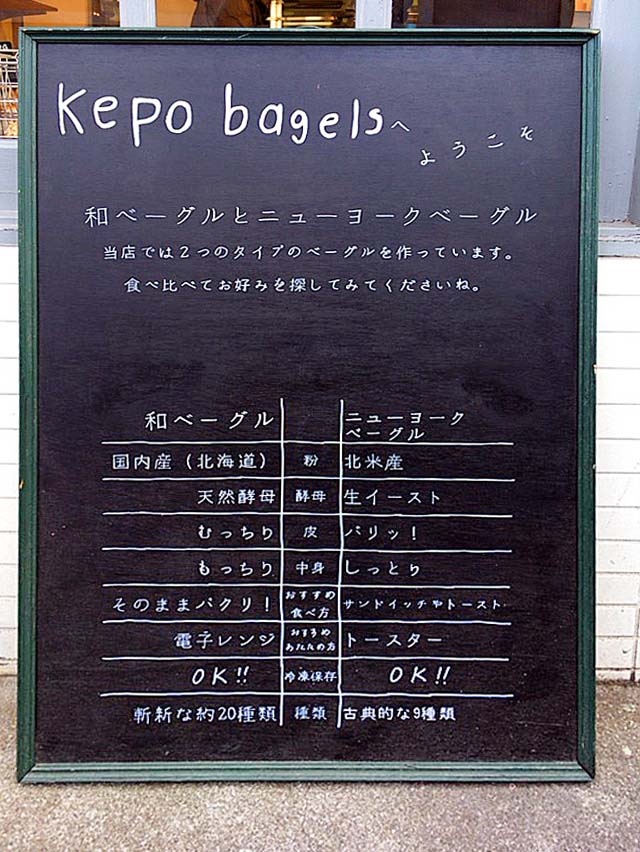 Kepo bagelsへ
ようこそ
和ベーグルとニューヨークベーグル
当店では2つのタイプのベーグルを作っています。
食べ比べてお好みを探してみてくださいね。
和ベーグル ニューヨーク
ベーグル
国内産(北海道) 粉 北米産
天然酵母 酵母 生イースト
むっちり 皮 パリッ!
もっちり 中身 しっとり
そのままパクリ! おすすめ 食べ方 サンドイッチやトースト
電子レンジ おすすめ あたため方 トースター
OK!! 冷凍保存 OK!!
斬新な約20種類 種類 古典的な9種類